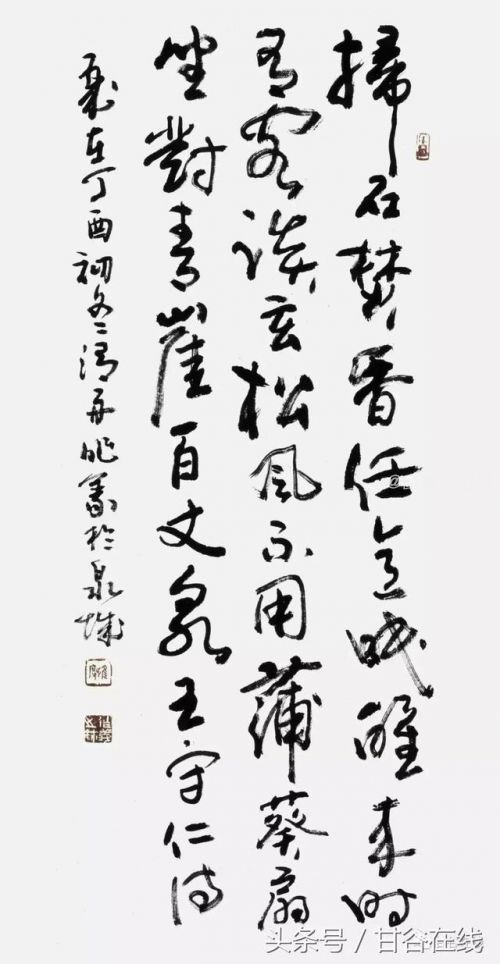 掃石焚香任意眠醒来时
有客談玄松風不用蒲葵扇
坐對青崖百丈泉王守仁诗
歲在丁酉初冬於泉城
头条号／甘谷在线